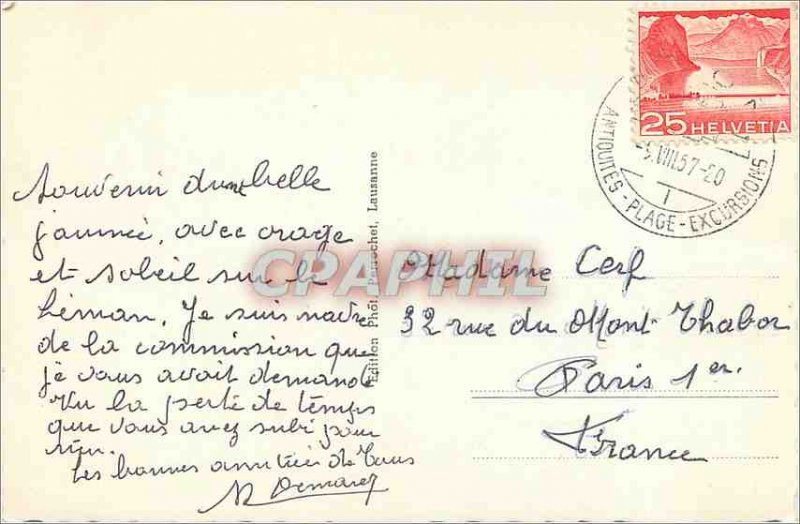 Souvenir d'une belle
journée, avec orage
et soleil sur le
Léman. Je suis navré
de la commission que
je vous avait demandé
vu la perte de temps
que vous avez subi pour
rien.
Les bonnes amitiés de tous
Edition Phot. Perrochet, Lausanne
25 HELVETIA
VIII.57-20
ANTIQUITES - PLAGE - EXCURSIONS
CPARAPHIL
Madame Cerf
32 rue du Mont-Thabor
Paris 1er.
France